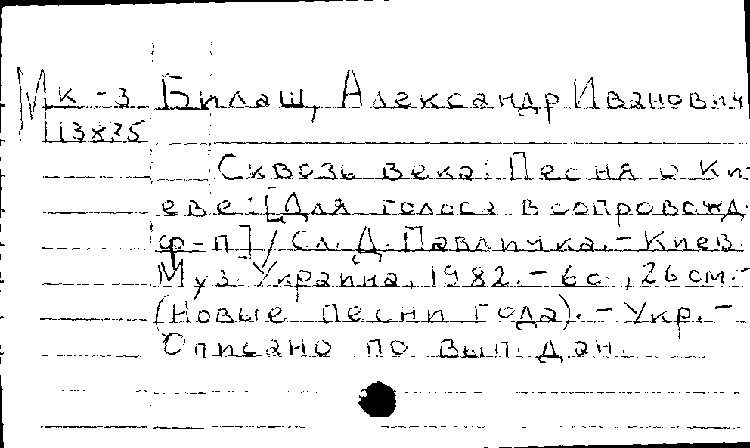 М к-3 Билаш, Александр Иванович
13875
Сквозь века: Песня о Ки-
еве: [Для голоса в сопровожд.
ф-п] / Сл. Д. Павлычка. - Киев:
Муз. Украина, 1982. - 6 с., 26 см. -
(Новые песни года). - Укр. -
Описано по вып. дан.